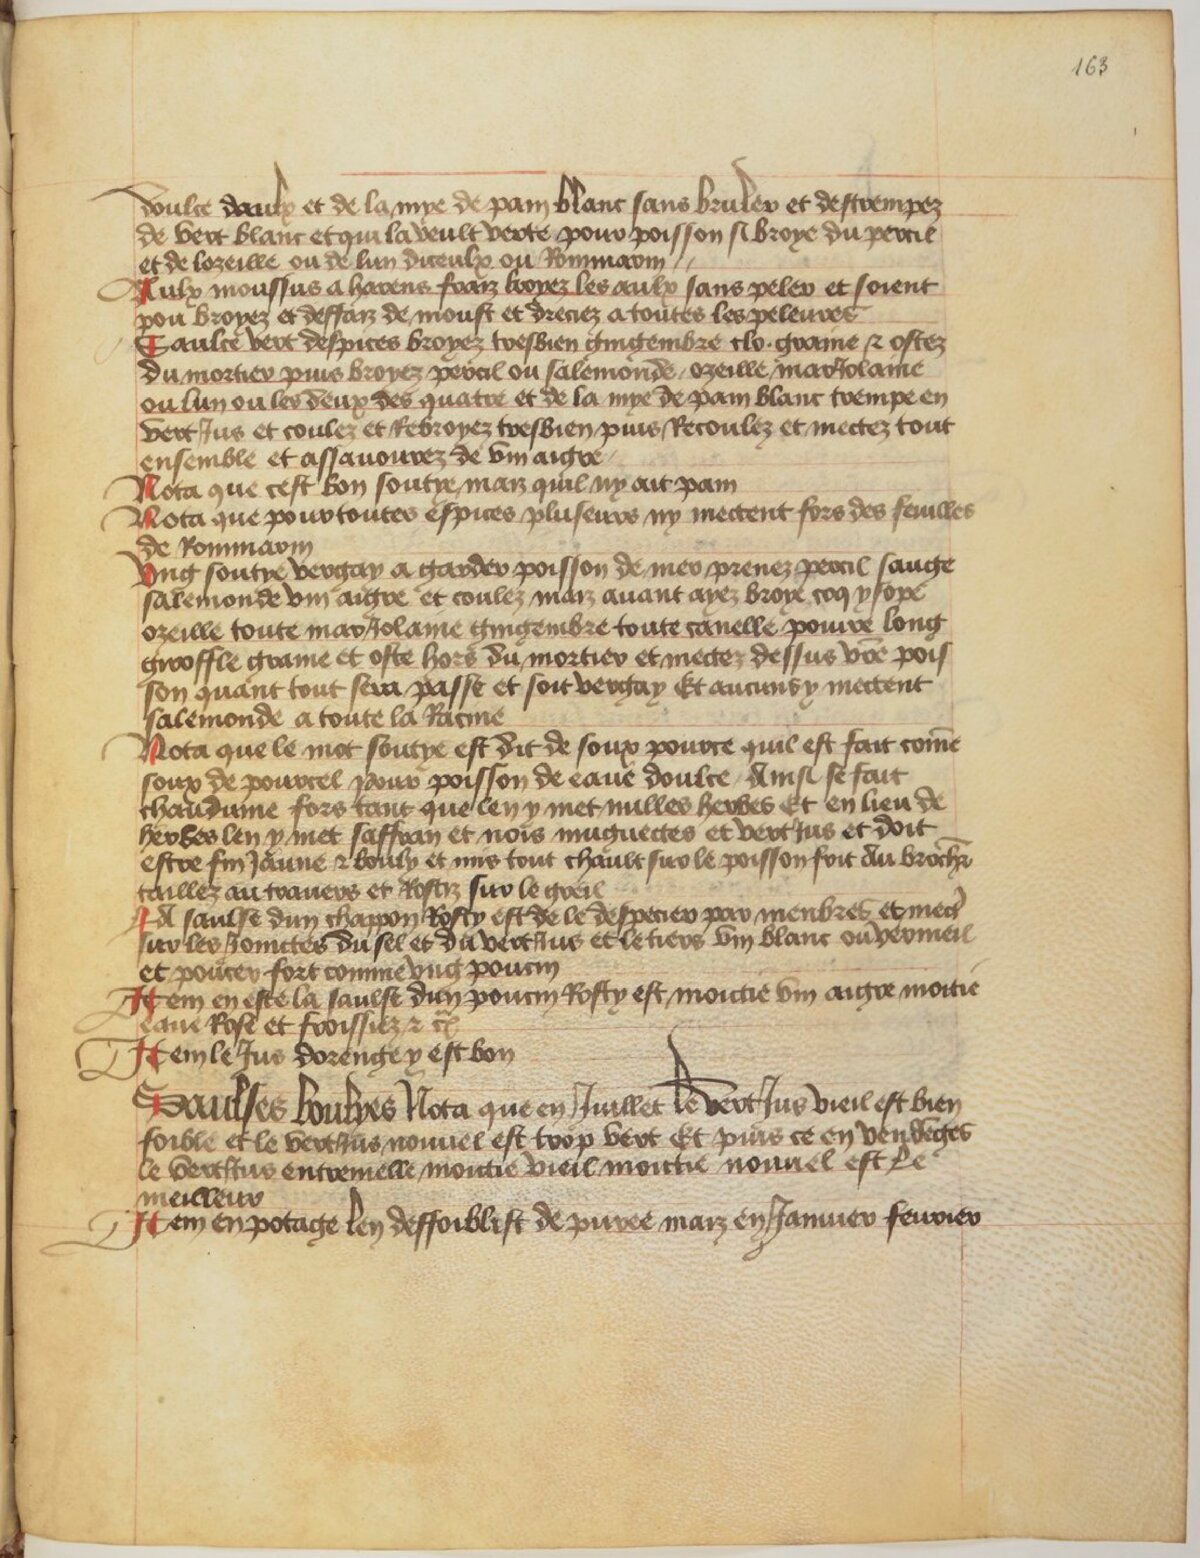 163
doulce daulx et de la mye de pain blanc sans bruler et destrempez
de vert blanc et qui la veult verte pour poisson si broye du percil
et de lozeille ou de lun diceulx ou Rommarin
Aulx moussus a harens fraiz broyez les aulx sans peler et soient
pou broyez et deffaiz de moust et dreciez a toutes les peleures
Saulce vert despices broyez tresbien gingembre clo. graine & ostez
du mortier puis broyez percil ou salemonde ozeille marJolaine
ou lun ou les deux des quatre et de la mye de pain blanc trempe en
vertJus et coulez et Rebroyez tresbien puis Recoulez et mectez tout
ensemble et assavourez de vin aigre
Nota que cest bon soutye maiz quil ny ait pain
Nota que pour toutes espices pluseurs ny mectent fors des feuilles
de Rommarin
Ung soutye vergay a garder poisson de mer prenez percil sauge
salemonde vin aigre et coulez maiz avant ayez broye coq ysope
ozeille toute marJolaine gingembre toute canelle pouvre long
grooffle graine et oste hors du mortier et mectez dessus vr̄e pois
son quant tout sera passe et soit vergay Et aucuns y mectent
salemonde a toute la Racine
Nota que le mot soutye est dit de soux pource quil est fait com̄e
soux de pourcel pour poisson de eaue doulce Ainsi se fait
chaudume fors tant que len y met nulles herbes Et en lieu de
herbes len y met saffran et nois muguectes et vertJus et doit
estre fin Jaune & bouly et mis tout chault sur le poisson froit du
taillez au travers et Rostiz sur le greil
LA saulse dun chappon Rosty est de le despecier par menbres et
sur les Joinctes du sel et du vertJus et le tiers vin blanc ou vermeil
et poucer fort comme ung poucin
Item en este la saulse dun poucin Rosty est moictie vin aigre moitie
eaue Rose et froissiez &
Item le Jus dorenge y est bon
Saulses boulyes Nota que en Juillet le vertJus vieil est bien
foible et le vertJus nouvel est trop vert Et puis ce en vendeges
le vertJus entremelle moictie vieil moictie nouvel est le
meilleur
Item en potage len deffoiblist de puree maiz en Janvier fevrier